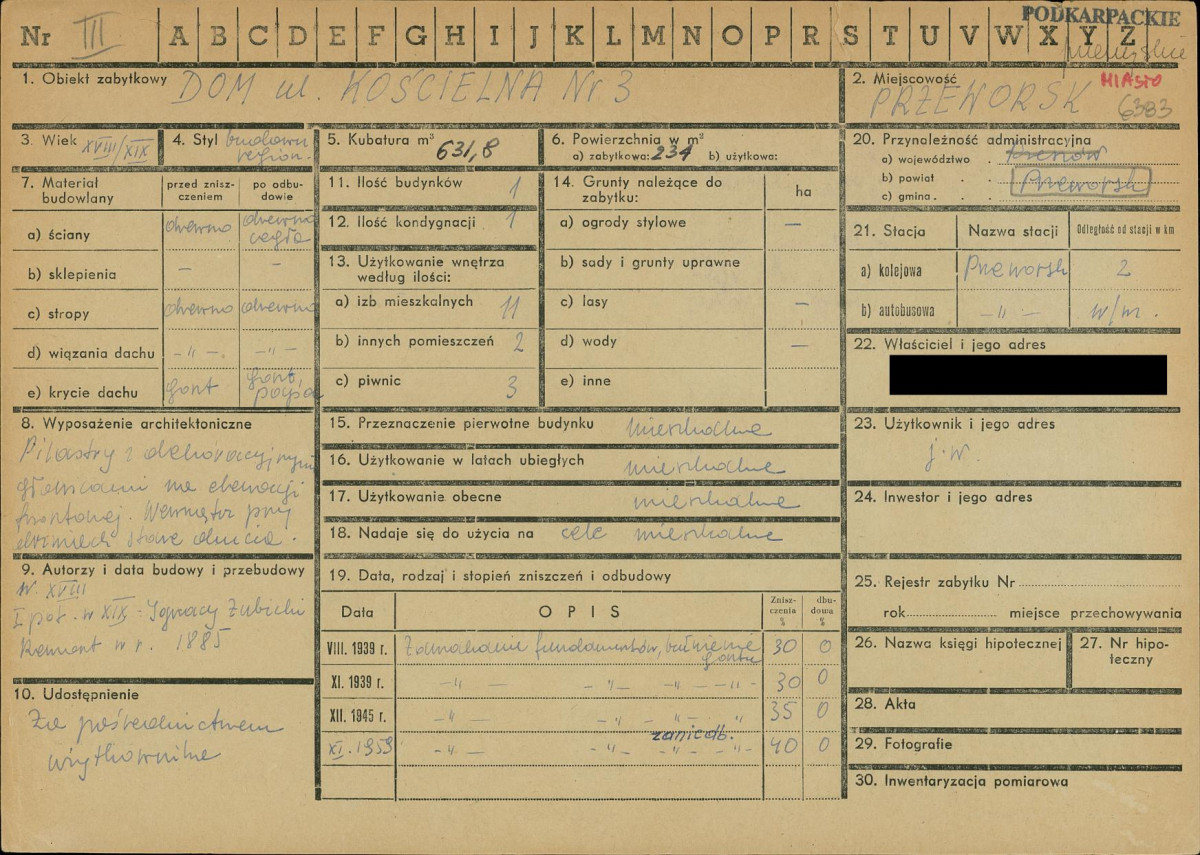 PODKARPACKIE
Nr III A B C D E F G H I J K L M N O P R S T U V W X Y Z
1. Obiekt zabytkowy DOM ul. KOŚCIELNA Nr 3
2. Miejscowość MIASTO
PRZEWORSK 6383
3. Wiek XVIII/XIX
4. Styl budown. region.
5. Kubatura m³ 631,8
6. Powierzchnia w m²
a) zabytkowa: 234 b) użytkowa:
7. Materiał budowlany
przed zniszczeniem
po odbudowie
a) ściany drewno drewno cegła
b) sklepienia – –
c) stropy drewno drewno
d) wiązania dachu –„– –„–
e) krycie dachu gont gont, papa
8. Wyposażenie architektoniczne
Pilastry z dekoracyjnymi
głowicami na elewacji
frontowej. Wewnątrz przy
drzwiach stare okucia.
9. Autorzy i data budowy i przebudowy
W. XVIII
I poł. w XIX – Ignacy Zubicki
Remont w r. 1885
10. Udostępnienie
Za pośrednictwem
użytkownika
11. Ilość budynków 1
12. Ilość kondygnacji 1
13. Użytkowanie wnętrza
według ilości:
a) izb mieszkalnych 11
b) innych pomieszczeń 2
c) piwnic 3
14. Grunty należące do
zabytku: ha
a) ogrody stylowe –
b) sady i grunty uprawne
c) lasy –
d) wody –
e) inne
15. Przeznaczenie pierwotne budynku mieszkalne
16. Użytkowanie w latach ubiegłych mieszkalne
17. Użytkowanie obecne mieszkalne
18. Nadaje się do użycia na cele mieszkalne
19. Data, rodzaj i stopień zniszczeń i odbudowy
Data OPIS Zniszczenia % dbudowa %
VIII. 1939 r. Zawilgocenie fundamentów, butwienie gontu 30 0
XI. 1939 r. –„– –„– –„– –„– 30 0
XII. 1945 r. –„– –„– –„– „ 35 0
zaniedb.
XI. 1959 –„– –„– –„– –„– 40 0
20. Przynależność administracyjna
a) województwo Rzeszów
b) powiat Przeworsk
c) gmina
21. Stacja Nazwa stacji Odległość od stacji w km
a) kolejowa Przeworsk 2
b) autobusowa –„– w/m.
22. Właściciel i jego adres
23. Użytkownik i jego adres
j.w.
24. Inwestor i jego adres
25. Rejestr zabytku Nr
rok miejsce przechowywania
26. Nazwa księgi hipotecznej
27. Nr hipoteczny
28. Akta
29. Fotografie
30. Inwentaryzacja pomiarowa